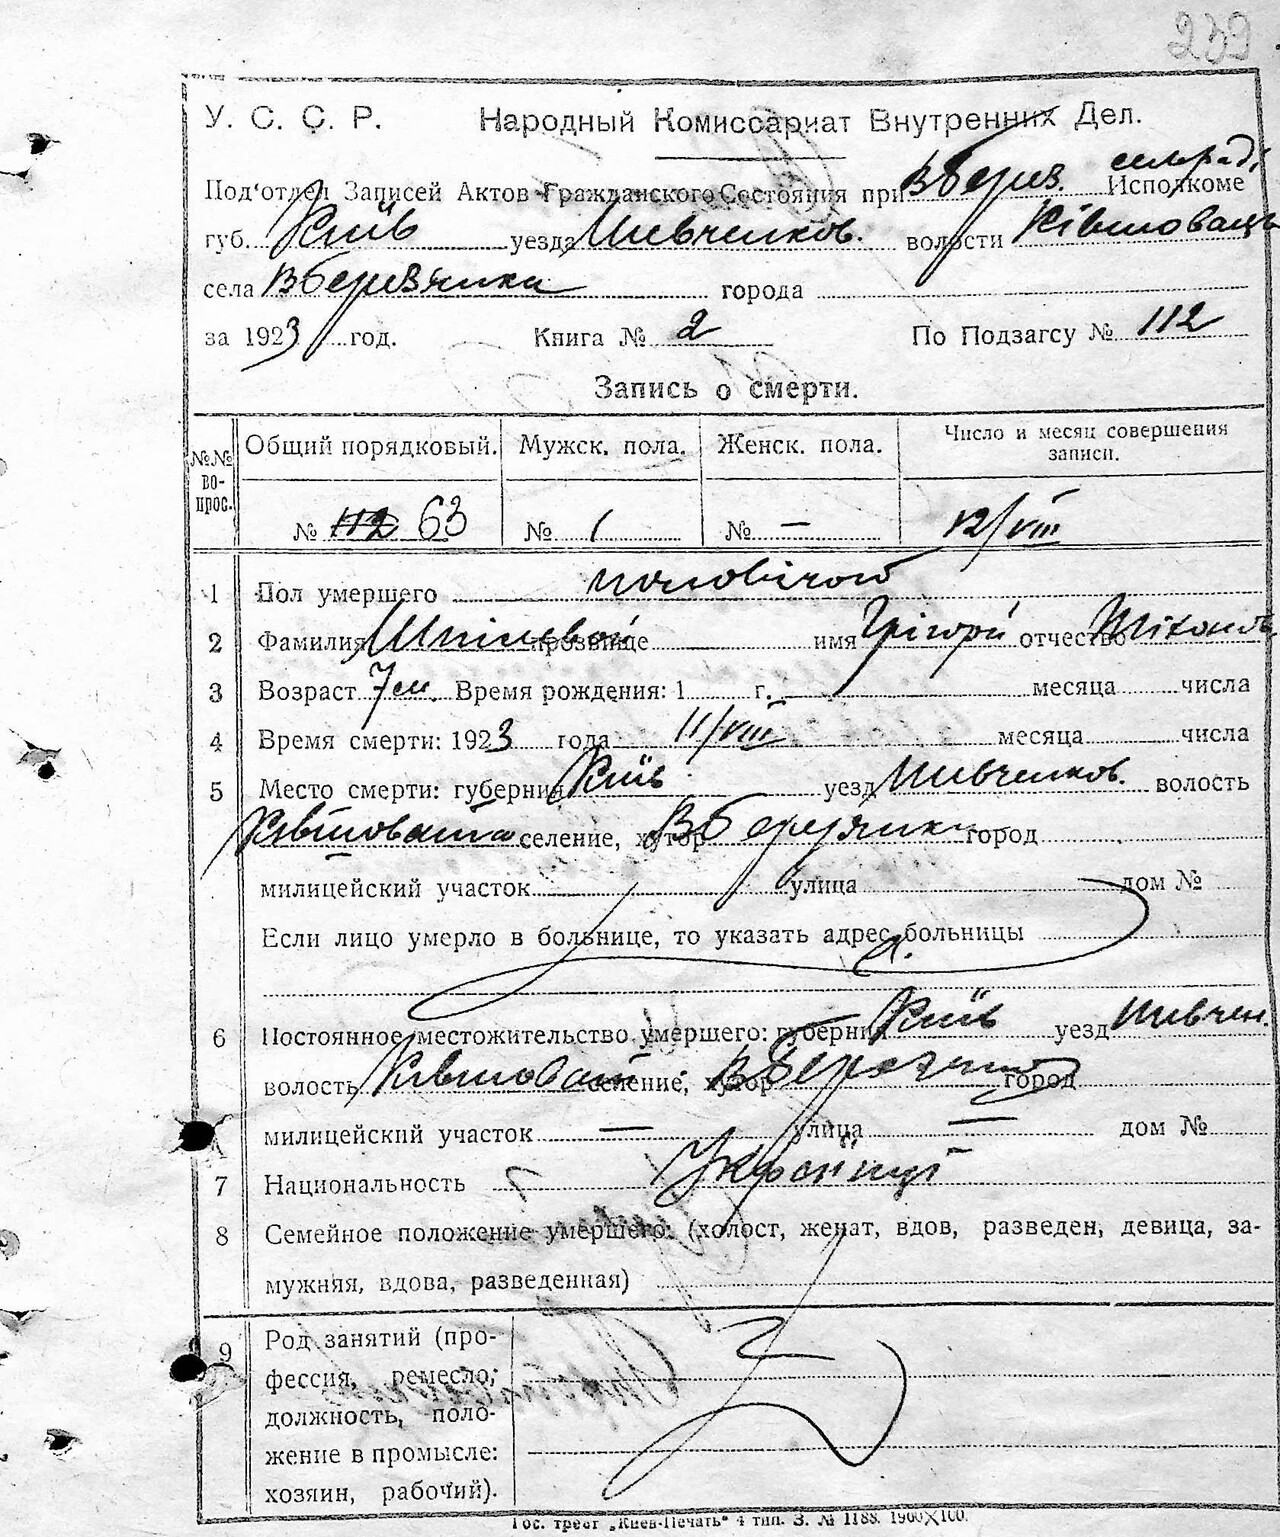 239
У. С. С. Р. Народный Комиссариат Внутренних Дел.
Под'отдел Записей Актов Гражданского Состояния при В Берез. сельраді Исполкоме
губ. Київ уезда Шевченков. волости
села В Березянка города
за 1923 год. Книга № 2 По Подзагсу № 112
Запись о смерти.
№№ вопрос. Общий порядковый. Мужск. пола. Женск. пола. Число и месяц совершения записи.
№ 112 63 № 1 № — 12/VIII
1 Пол умершего чоловічої
2 Фамилия прозвище имя Грігорій отчество Тіхонов
3 Возраст 7 м. Время рождения: 1 г. месяца числа
4 Время смерти: 1923 года 11/VIII месяца числа
5 Место смерти: губерния Київ уезд Шевченков. волость
селение, хутор В Березянка город
милицейский участок улица дом №
Если лицо умерло в больнице, то указать адрес больницы
6 Постоянное местожительство умершего: губерния Київ уезд Шевчен.
волость селение, хутор город
милицейский участок — улица — дом №
7 Национальность
8 Семейное положение умершего: (холост, женат, вдов, разведен, девица, за-
мужняя, вдова, разведенная)
9 Род занятий (про-
фессия, ремесло,
должность, поло-
жение в промысле:
хозяин, рабочий).
Гос. трест „Киев-Печать“ 4 тип. З. № 1188. 1900×100.